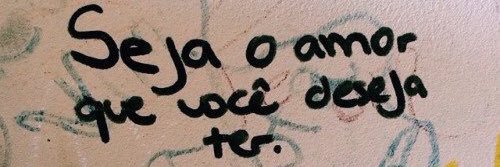 Seja o amor
que você deseja
ter.